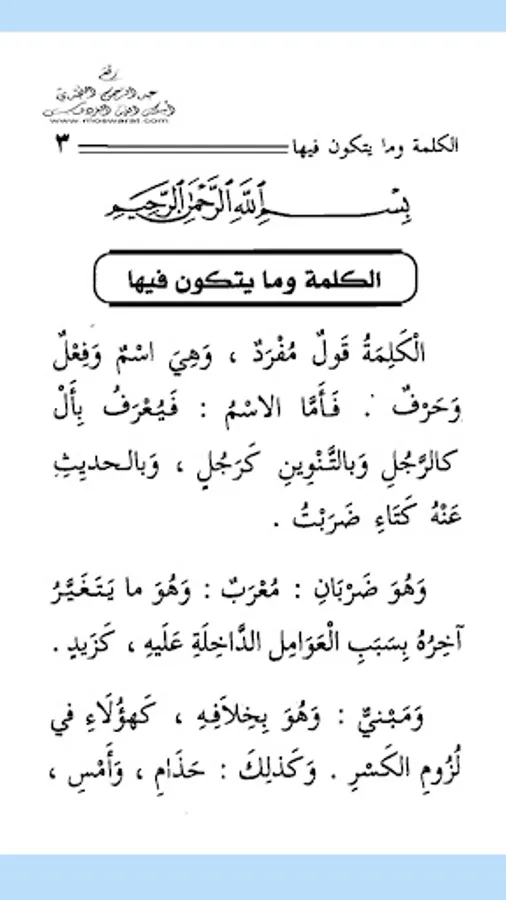 رفع
عبد الرحمن النجدي
أسكنه الله الفردوس
www.moswarat.com
الكلمة وما يتكون فيها ٣
بِسْمِ ٱللَّهِ ٱلرَّحْمَٰنِ ٱلرَّحِيمِ
الكلمة وما يتكون فيها
الْكَلِمَةُ قَولٌ مُفْرَدٌ ، وَهِيَ اسْمٌ وَفِعْلٌ
وَحَرْفٌ . فَأَمَّا الاسْمُ : فَيُعْرَفُ بِأَلْ
كالرَّجُلِ وَبالتَّنْوِينِ كَرَجُلٍ ، وَبالحديِثِ
عَنْهُ كَتَاءِ ضَرَبْتُ .
وَهُوَ ضَرْبَانِ : مُعْرَبٌ : وَهُوَ ما يَتَغَيَّرُ
آخِرُهُ بِسَبَبِ الْعَوَامِل الدَّاخِلَةِ عَلَيهِ ، كَزَيدٍ .
وَمَبْنيٌّ : وَهُوَ بِخِلاَفِهِ ، كَهؤُلَاءِ في
لُزُومِ الكَسْرِ . وَكَذلِكَ : حَذَامِ ، وَأَمْسِ ،